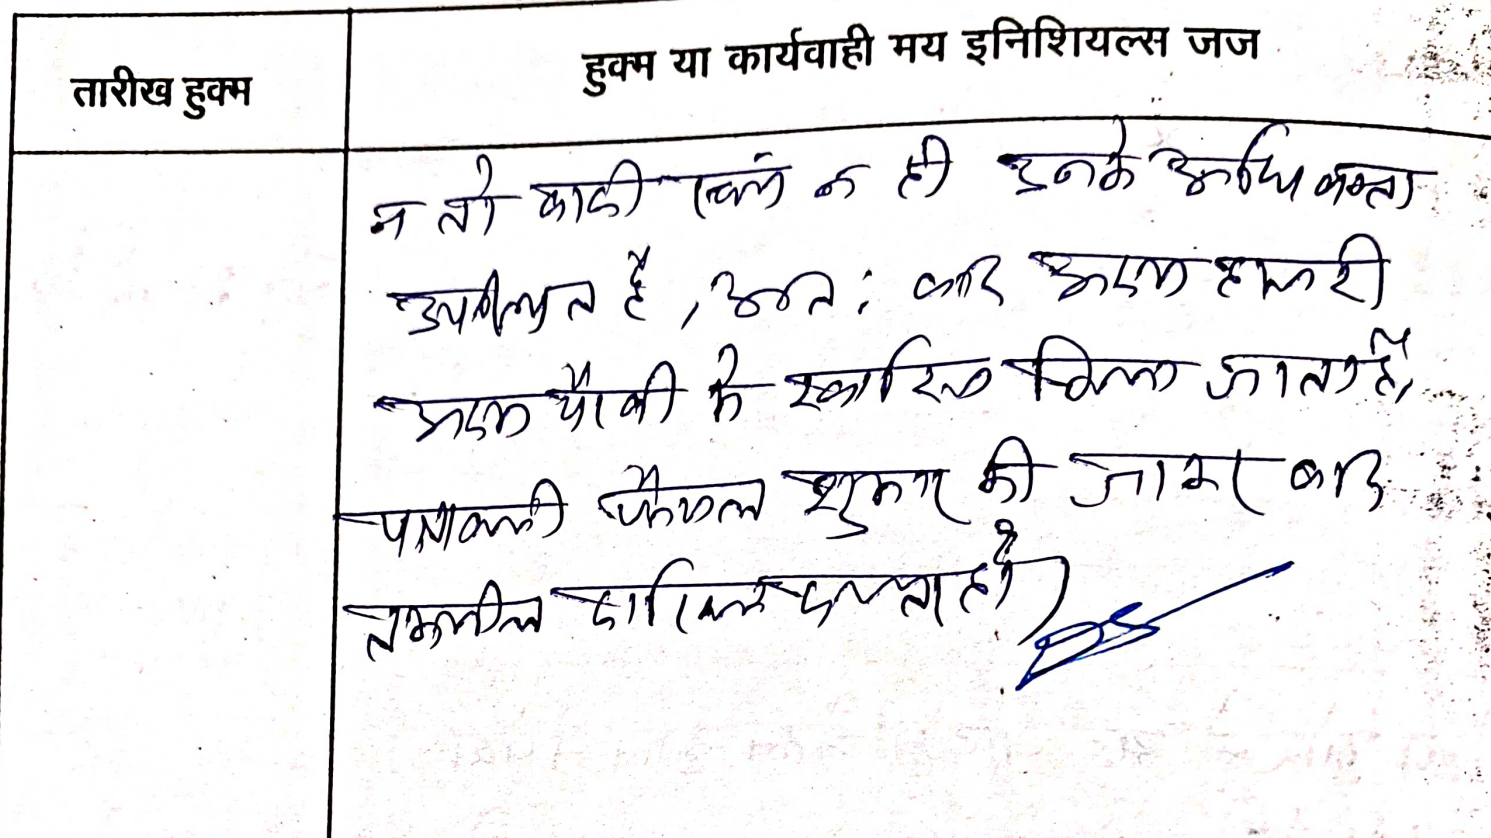 तारीख हुक्म
हुक्म या कार्यवाही मय इनिशियल्स जज
न तो वादी स्वयं न ही उनके अधिवक्ता
उपस्थित है, अतः वाद अदम हाजरी
अदम पैरवी में खारिज किया जाता है,
पत्रावली फैसल शुमार की जाकर बाद
तकमील दाखिल दफ्तर हो।